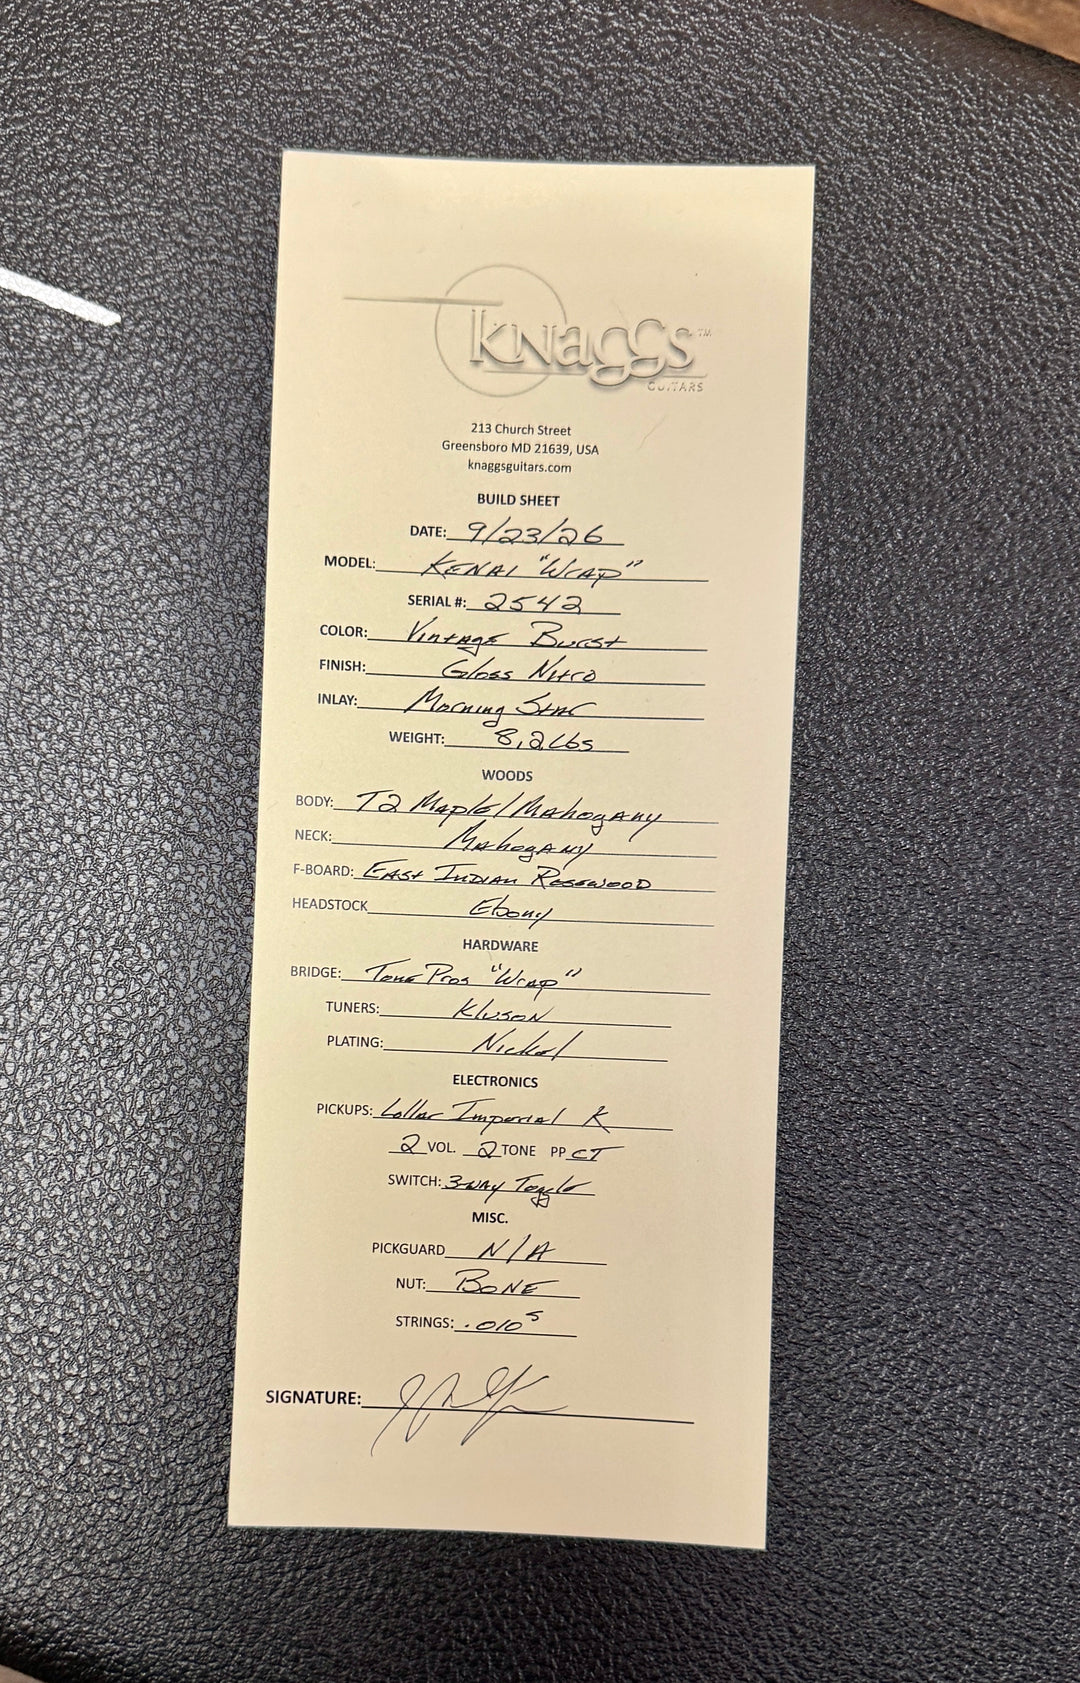 Knaggs™
GUITARS
213 Church Street
Greensboro MD 21639, USA
knaggsguitars.com
BUILD SHEET
DATE: 9/23/26
MODEL: KENAI "Wrap"
SERIAL #: 2542
COLOR: Vintage Burst
FINISH: Gloss Nitro
INLAY: Morning Star
WEIGHT: 8.2 Lbs
WOODS
BODY: T2 Maple/Mahogany
NECK: Mahogany
F-BOARD: East Indian Rosewood
HEADSTOCK Ebony
HARDWARE
BRIDGE: Tone Pros "Wrap"
TUNERS: Kluson
PLATING: Nickel
ELECTRONICS
PICKUPS: Lollar Imperial K
2 VOL. 2 TONE PP CT
SWITCH: 3-way Toggle
MISC.
PICKGUARD N/A
NUT: BONE
STRINGS: .010s
SIGNATURE: